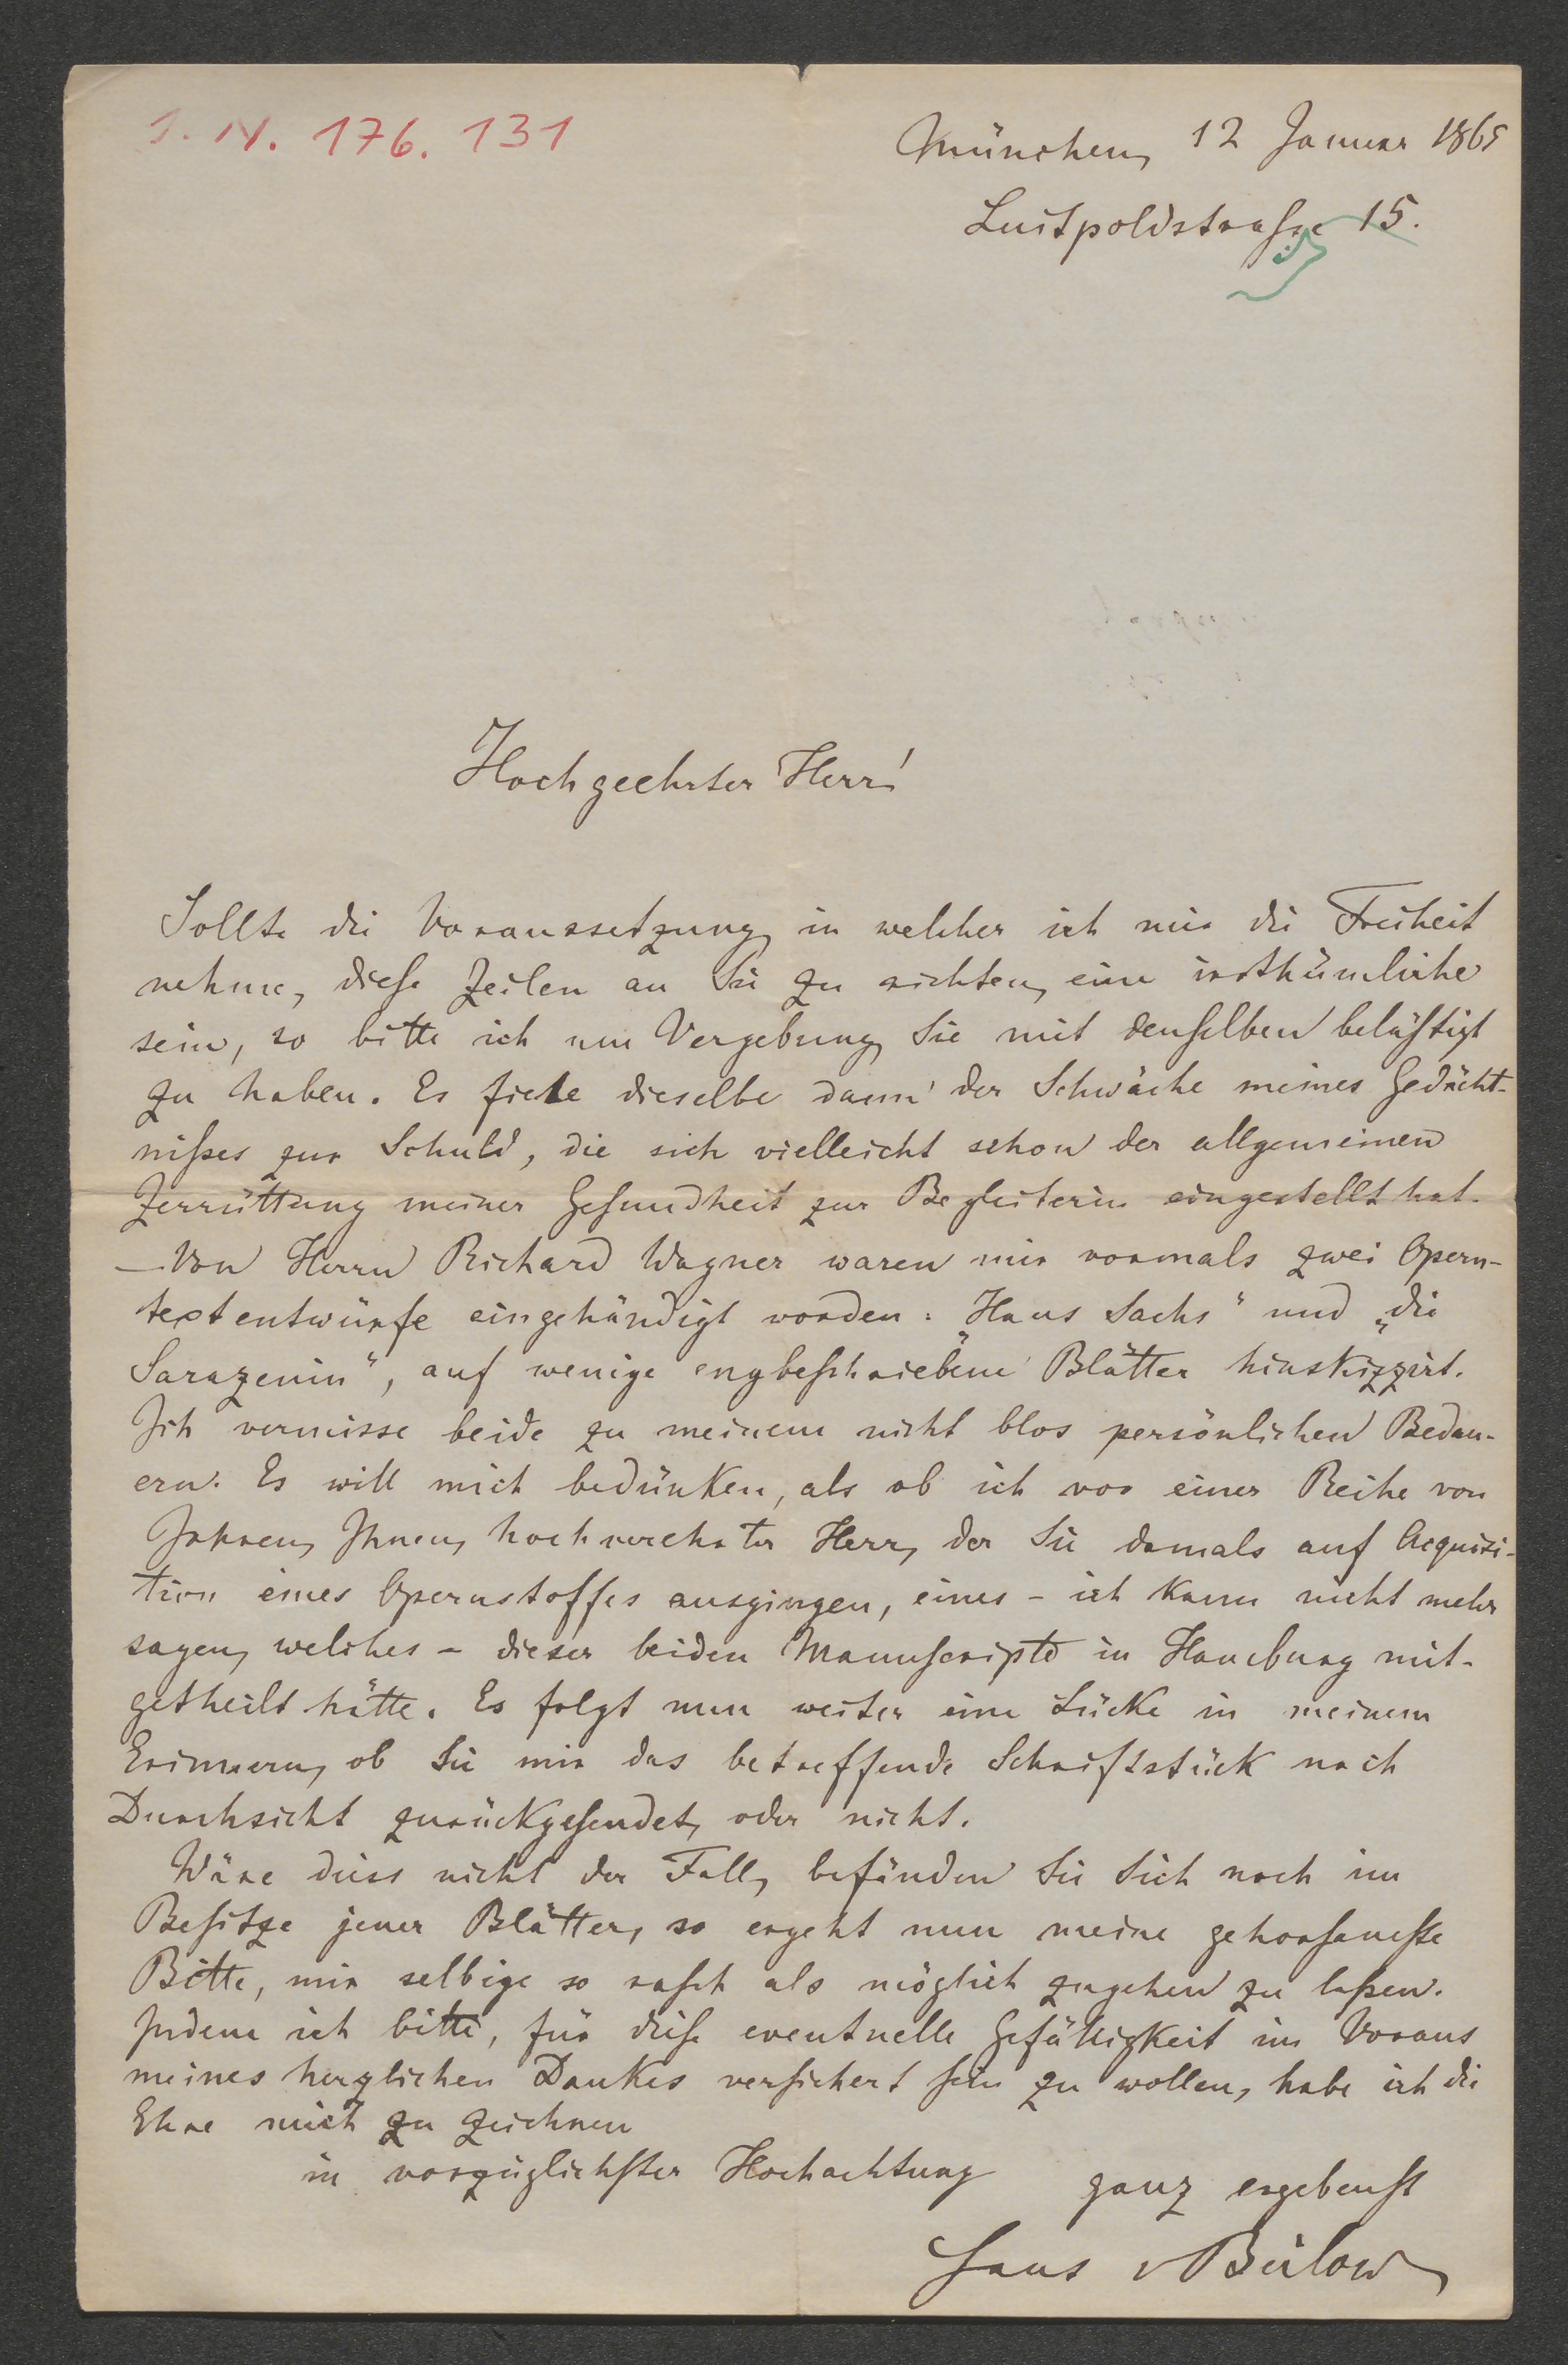 I. N. 176. 131
München, 12 Januar 1865
Luitpoldstraſse 15.
Hochgeehrter Herr!
Sollte die Voraussetzung, in welcher ich mir die Freiheit
nehme, dieſe Zeilen an Sie zu richten, eine irrthümliche
sein, so bitte ich um Vergebung, Sie mit denſelben beläſtigt
zu haben. Es fiele dieselbe dann der Schwäche meines Gedächt-
niſses zur Schuld, die sich vielleicht schon der allgemeinen
Zerrüttung meiner Geſundheit zur Begleiterin eingestellt hat.
— Von Herrn Richard Wagner waren mir vormals zwei Opern-
textentwürfe eingehändigt worden: „Hans Sachs“ und „die
Sarazenin“, auf wenige engbeſchriebene Blätter hinskizzirt.
Ich vermisse beide zu meinem nicht blos persönlichen Bedau-
ern. Es will mich bedünken, als ob ich vor einer Reihe von
Jahren, Ihnen, hochverehrter Herr, der Sie damals auf Acquisi-
tion eines Opernstoffes ausgingen, eines – ich kann nicht mehr
sagen, welches – dieser beiden Manuſcripte in Hamburg mit-
getheilt hätte. Es folgt nun weiter eine Lücke in meinem
Erinnern, ob Sie mir das betreffende Schriftstück nach
Durchsicht zurückgeſendet, oder nicht.
Wäre diess nicht der Fall, befänden Sie Sich noch im
Beſitze jener Blätter, so ergeht nun meine gehorſamſte
Bitte, mir selbige so raſch als möglich zugehen zu laſsen.
Indem ich bitte, für dieſe eventuelle Gefälligkeit im Voraus
meines herzlichen Dankes verſichert ſein zu wollen, habe ich die
Ehre mich zu zeichnen
in vorzüglichſter Hochachtung
ganz ergebenſt
Hans v Bülow